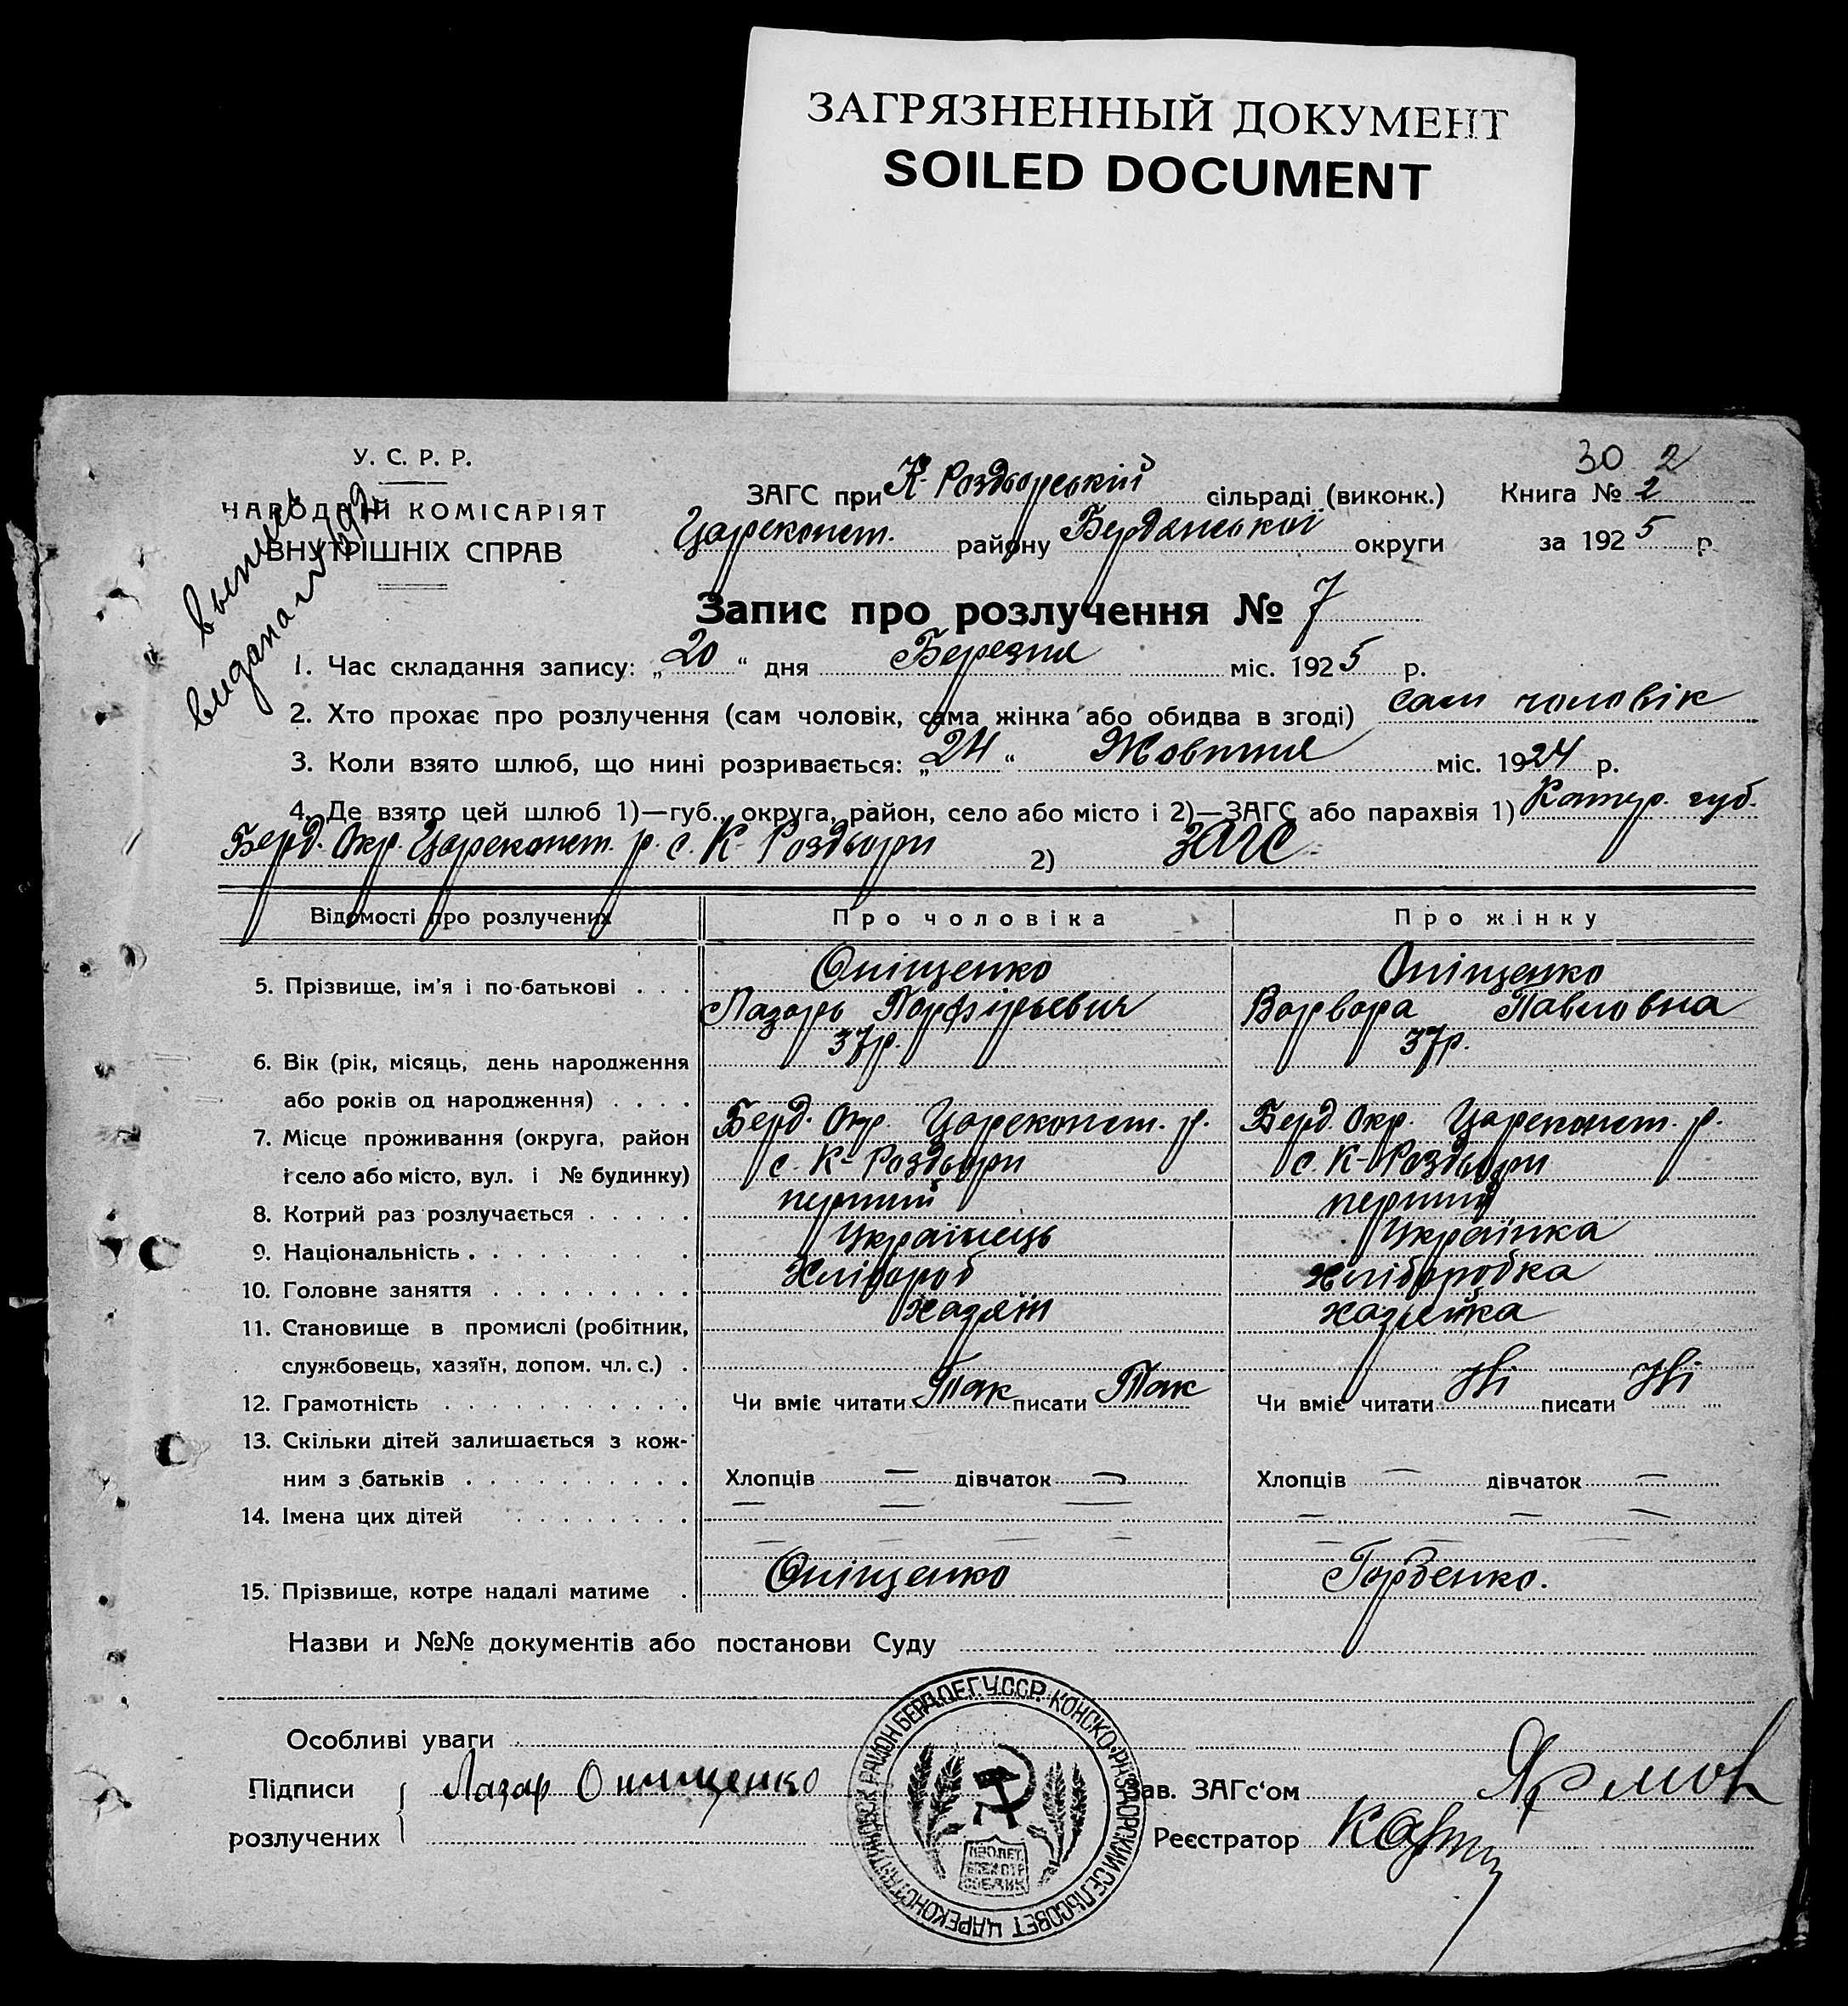 ЗАГРЯЗНЕННЫЙ ДОКУМЕНТ
SOILED DOCUMENT
30 2
У. С. Р. Р.
НАРОДНІЙ КОМІСАРІЯТ
ВНУТРІШНІХ СПРАВ
выпись
видана
ЗАГС при К-Роздорській сільраді (виконк.) Книга № 2
Цареконст. району Бердянської округи за 1925 р.
Запис про розлучення № 7
1. Час складання запису: „20“ дня Березня міс. 1925 р.
2. Хто прохає про розлучення (сам чоловік, сама жінка або обидва в згоді) сам чоловік
3. Коли взято шлюб, що нині розривається: „24“ Жовтня міс. 1924 р.
4. Де взято цей шлюб 1)—губ., округа, район, село або місто і 2)—ЗАГС або парахвія 1) Катер. губ.
Берд. Окр. Цареконст. р. с. К-Роздори 2) ЗАГС
Відомості про розлучених Про чоловіка Про жінку
5. Прізвище, ім'я і по-батькові . . . Оніщенко Оніщенко
Лазарь Порфірьевич Варвара Павловна
6. Вік (рік, місяць, день народження 37 р. 37 р.
або років од народження) . . . .
7. Місце проживання (округа, район Берд. Окр. Цареконст. р. Берд. Окр. Цареконст. р.
і село або місто, вул. і № будинку) с. К-Роздори с. К-Роздори
8. Котрий раз розлучається . . . . . перший перший
9. Національність . . . . . . . Українець Українка
10. Головне заняття . . . . . . . . . Хлібороб хліборобка
11. Становище в промислі (робітник, хазяїн хазяйка
службовець, хазяїн, допом. чл. с.) .
12. Грамотність . . . . . . . . . . . Чи вміє читати Так писати Так Чи вміє читати Ні писати Ні
13. Скільки дітей залишається з кож-
ним з батьків . . . . . . . . . . Хлопців — дівчаток — Хлопців — дівчаток —
14. Імена цих дітей . . . . . . . . — — — — — —
— — — — — — —
15. Прізвище, котре надалі матиме . Оніщенко Горбенко.
Назви и №№ документів або постанови Суду
Особливі уваги
Підписи Лазар Онищенко Зав. ЗАГс'ом
розлучених Реєстратор
ЦАРЕКОНСТАНТИНОВСК РАЙОН БЕРД.ОЕГ.У.ССР. КОНСКО-РАЗДОРСКИЙ СЕЛЬСОВЕТ
ПРОЛЕТ.
ВСЕХ СТР
СОЕДИН